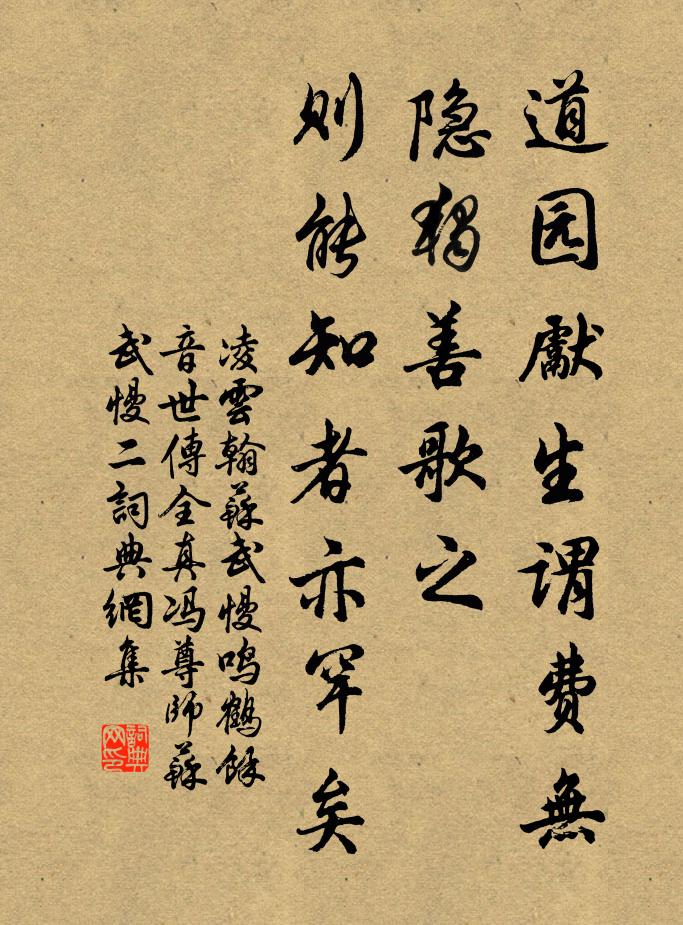 道园獻生謂費無
隐獨善歌之
則能知者亦罕矣
凌雲翰蘇武慢鳴鶴餘
音世傳全真冯尊師蘇
武慢二詞典網集
詞典网印